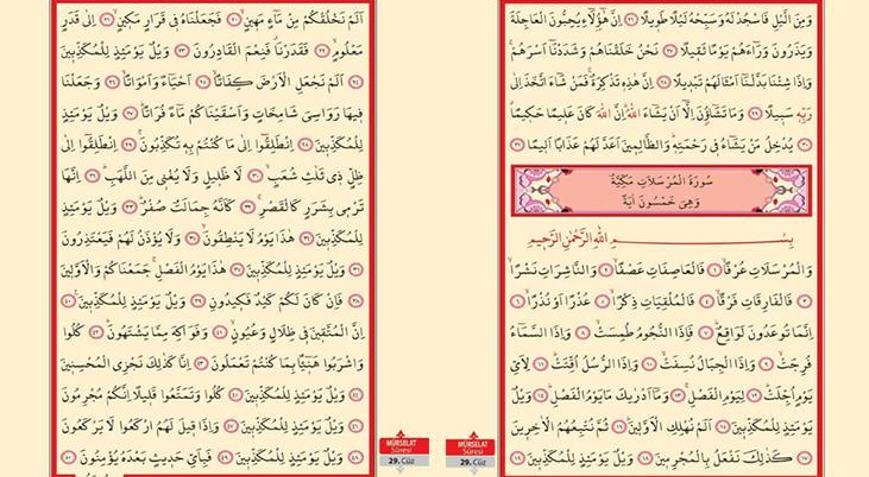 وَمِنَ الَّيْلِ فَاسْجُدْ لَهُ وَسَبِّحْهُ لَيْلًا طَوِيلًا ﴿٢٦﴾ اِنَّ هٰٓؤُلَٓاءِ يُحِبُّونَ الْعَاجِلَةَ
وَيَذَرُونَ وَرَٓاءَهُمْ يَوْمًا ثَقِيلًا ﴿٢٧﴾ نَحْنُ خَلَقْنَاهُمْ وَشَدَدْنَٓا اَسْرَهُمْۚ
وَاِذَا شِئْنَا بَدَّلْنَٓا اَمْثَالَهُمْ تَبْدِيلًا ﴿٢٨﴾ اِنَّ هٰذِهِ تَذْكِرَةٌۚ فَمَنْ شَٓاءَ اتَّخَذَ اِلٰى
رَبِّهِ سَبِيلًا ﴿٢٩﴾ وَمَا تَشَٓاؤُ۫نَ اِلَّٓا اَنْ يَشَٓاءَ اللّٰهُۜ اِنَّ اللّٰهَ كَانَ عَلِيمًا حَكِيمًاۗ
﴿٣٠﴾ يُدْخِلُ مَنْ يَشَٓاءُ فِي رَحْمَتِهِۜ وَالظَّالِمِينَ اَعَدَّ لَهُمْ عَذَابًا اَلِيمًا ﴿٣١﴾
سُورَةُ الْمُرْسَلَاتِ مَكِّيَّةٌ
وَهِيَ خَمْسُونَ اٰيَةً
بِسْمِ اللّٰهِ الرَّحْمٰنِ الرَّحِيمِ
وَالْمُرْسَلَاتِ عُرْفًاۙ ﴿١﴾ فَالْعَاصِفَاتِ عَصْفًاۙ ﴿٢﴾ وَالنَّاشِرَاتِ نَشْرًاۙ
﴿٣﴾ فَالْفَارِقَاتِ فَرْقًاۙ ﴿٤﴾ فَالْمُلْقِيَاتِ ذِكْرًاۙ ﴿٥﴾ عُذْرًا اَوْ نُذْرًاۙ ﴿٦﴾
اِنَّمَا تُوعَدُونَ لَوَاقِعٌۜ ﴿٧﴾ فَاِذَا النُّجُومُ طُمِسَتْۙ ﴿٨﴾ وَاِذَا السَّمَٓاءُ
فُرِجَتْۙ ﴿٩﴾ وَاِذَا الْجِبَالُ نُسِفَتْۙ ﴿١٠﴾ وَاِذَا الرُّسُلُ اُقِّتَتْۜ ﴿١١﴾ لِاَيِّ
يَوْمٍ اُجِّلَتْۜ ﴿١٢﴾ لِيَوْمِ الْفَصْلِۚ ﴿١٣﴾ وَمَٓا اَدْرٰيكَ مَا يَوْمُ الْفَصْلِۜ ﴿١٤﴾ وَيْلٌ
يَوْمَئِذٍ لِلْمُكَذِّبِينَ ﴿١٥﴾ اَلَمْ نُهْلِكِ الْاَوَّلِينَۜ ﴿١٦﴾ ثُمَّ نُتْبِعُهُمُ الْاٰخِرِينَ
﴿١٧﴾ كَذٰلِكَ نَفْعَلُ بِالْمُجْرِمِينَ ﴿١٨﴾ وَيْلٌ يَوْمَئِذٍ لِلْمُكَذِّبِينَ ﴿١٩﴾
MÜRSELAT
Sûresi
29. Cüz
اَلَمْ نَخْلُقْكُمْ مِنْ مَٓاءٍ مَهِينٍۙ ﴿٢٠﴾ فَجَعَلْنَاهُ فِي قَرَارٍ مَكِينٍۙ ﴿٢١﴾ اِلٰى قَدَرٍ
مَعْلُومٍۙ ﴿٢٢﴾ فَقَدَرْنَاۗ فَنِعْمَ الْقَادِرُونَ ﴿٢٣﴾ وَيْلٌ يَوْمَئِذٍ لِلْمُكَذِّبِينَ
﴿٢٤﴾ اَلَمْ نَجْعَلِ الْاَرْضَ كِفَاتًاۙ ﴿٢٥﴾ اَحْيَٓاءً وَاَمْوَاتًاۙ ﴿٢٦﴾ وَجَعَلْنَا
فِيهَا رَوَاسِيَ شَامِخَاتٍ وَاَسْقَيْنَاكُمْ مَٓاءً فُرَاتًاۜ ﴿٢٧﴾ وَيْلٌ يَوْمَئِذٍ
لِلْمُكَذِّبِينَ ﴿٢٨﴾ اِنْطَلِقُٓوا اِلٰى مَا كُنْتُمْ بِهِ تُكَذِّبُونَۚ ﴿٢٩﴾ اِنْطَلِقُٓوا اِلٰى
ظِلٍّ ذِي ثَلٰثِ شُعَبٍۙ ﴿٣٠﴾ لَا ظَلِيلٍ وَلَا يُغْنِي مِنَ اللَّهَبِۜ ﴿٣١﴾ اِنَّهَا
تَرْمِي بِشَرَرٍ كَالْقَصْرِۚ ﴿٣٢﴾ كَاَنَّهُ جِمَالَتٌ صُفْرٌۜ ﴿٣٣﴾ وَيْلٌ يَوْمَئِذٍ
لِلْمُكَذِّبِينَ ﴿٣٤﴾ هٰذَا يَوْمُ لَا يَنْطِقُونَۙ ﴿٣٥﴾ وَلَا يُؤْذَنُ لَهُمْ فَيَعْتَذِرُونَ
﴿٣٦﴾ وَيْلٌ يَوْمَئِذٍ لِلْمُكَذِّبِينَ ﴿٣٧﴾ هٰذَا يَوْمُ الْفَصْلِۚ جَمَعْنَاكُمْ وَالْاَوَّلِينَ
﴿٣٨﴾ فَاِنْ كَانَ لَكُمْ كَيْدٌ فَكِيدُونِ ﴿٣٩﴾ وَيْلٌ يَوْمَئِذٍ لِلْمُكَذِّبِينَ۟ ﴿٤٠﴾
اِنَّ الْمُتَّقِينَ فِي ظِلَالٍ وَعُيُونٍۙ ﴿٤١﴾ وَفَوَاكِهَ مِمَّا يَشْتَهُونَۜ ﴿٤٢﴾ كُلُوا
وَاشْرَبُوا هَنِٓيـًٔا بِمَا كُنْتُمْ تَعْمَلُونَ ﴿٤٣﴾ اِنَّا كَذٰلِكَ نَجْزِي الْمُحْسِنِينَ
﴿٤٤﴾ وَيْلٌ يَوْمَئِذٍ لِلْمُكَذِّبِينَ ﴿٤٥﴾ كُلُوا وَتَمَتَّعُوا قَلِيلًا اِنَّكُمْ مُجْرِمُونَ
﴿٤٦﴾ وَيْلٌ يَوْمَئِذٍ لِلْمُكَذِّبِينَ ﴿٤٧﴾ وَاِذَا قِيلَ لَهُمُ ارْكَعُوا لَا يَرْكَعُونَ
﴿٤٨﴾ وَيْلٌ يَوْمَئِذٍ لِلْمُكَذِّبِينَ ﴿٤٩﴾ فَبِاَيِّ حَدِيثٍ بَعْدَهُ يُؤْمِنُونَ ﴿٥٠﴾
MÜRSELAT
Sûresi
29. Cüz